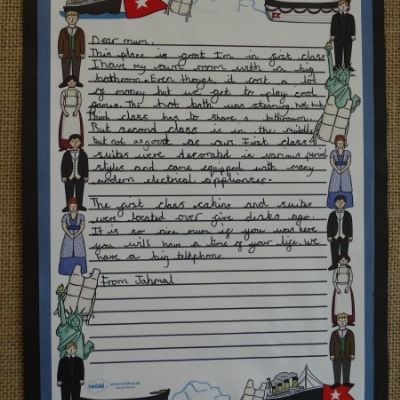 Dear mum,
This place is great I'm in first class
I have my own room with a big
bathroom. Even though it cost a lot
of money but we get to play cool
games. The hot bath was steaming hot but
Think class has to share a bathroom.
But second class is in the middle
but not as good as our. First class
suites were decorated in various period
styles and came equipped with many
modern electrical appliances.
The first class cabins and suites
were located over five decks ago.
It is so nice mum if you was here
you will have a time of your life. We
have a big telephone.
From Jahmal
twinkl www.twinkl.co.uk